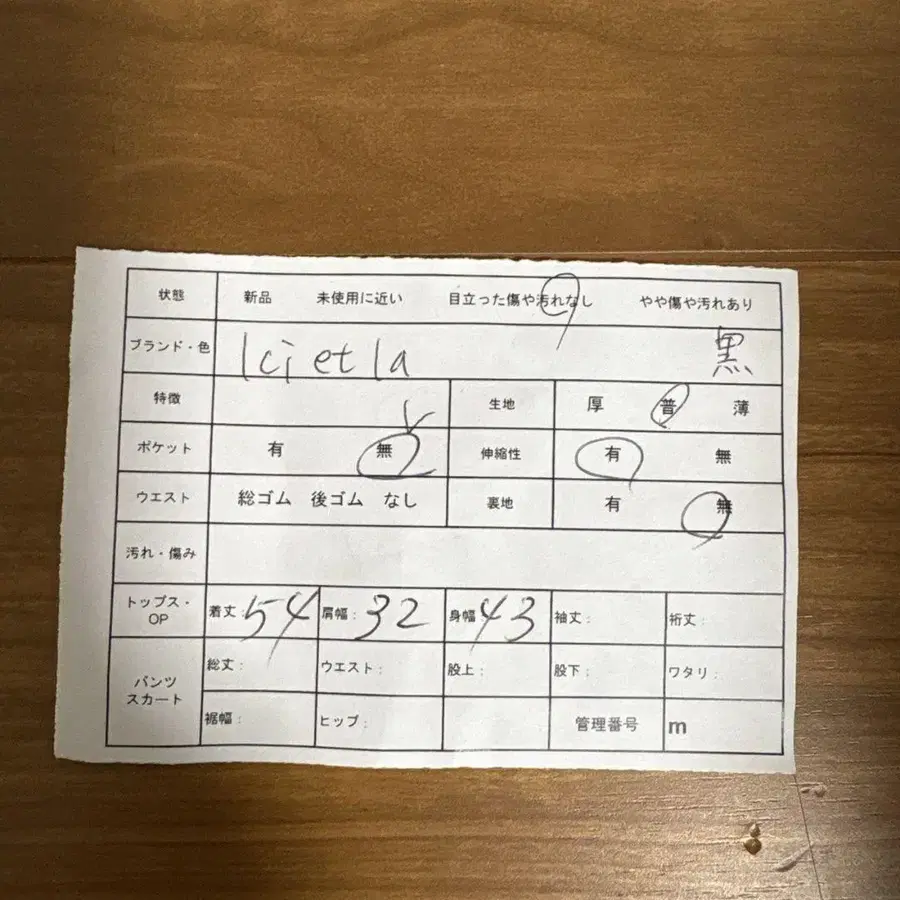 状態 新品 未使用に近い 目立った傷や汚れなし やや傷や汚れあり
ブランド・色 Ici et la 黒
特徴 生地 厚 普 薄
ポケット 有 無 伸縮性 有 無
ウエスト 総ゴム 後ゴム なし 裏地 有 無
汚れ・傷み
トップス・OP 着丈:54 肩幅:32 身幅:43 袖丈: 裄丈:
パンツ スカート 総丈: ウエスト: 股上: 股下: ワタリ:
裾幅: ヒップ: 管理番号 m